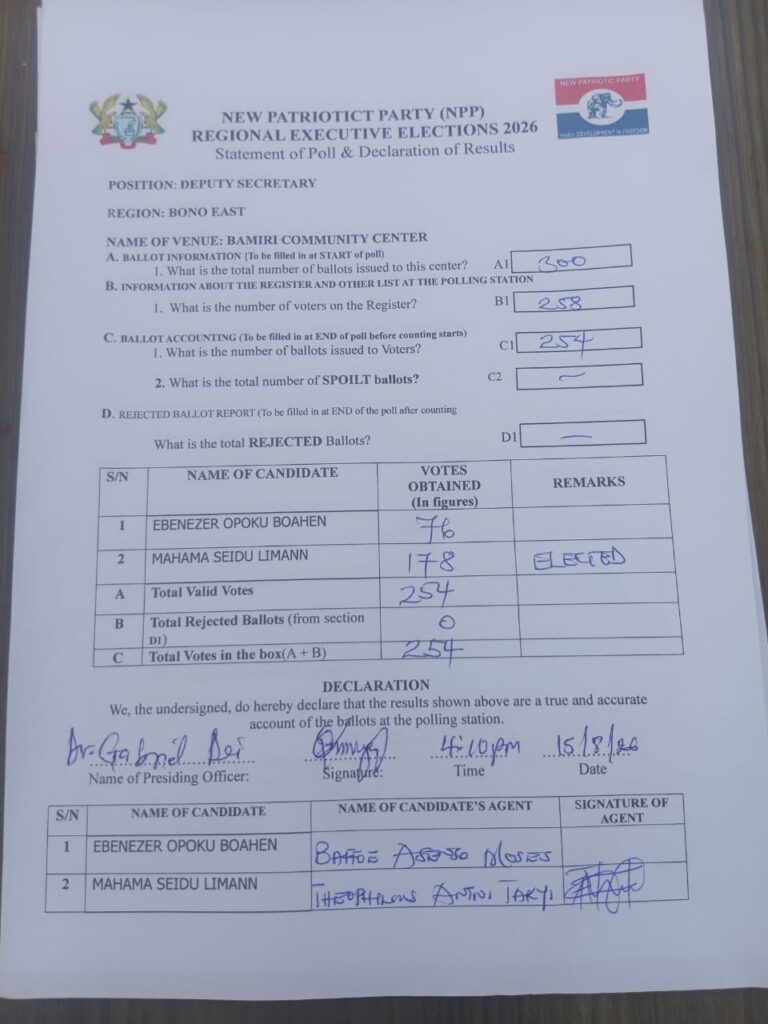 NEW PATRIOTIC PARTY
NPP... DEVELOPMENT IN FREEDOM
NEW PATRIOTICT PARTY (NPP)
REGIONAL EXECUTIVE ELECTIONS 2026
Statement of Poll & Declaration of Results
POSITION: DEPUTY SECRETARY
REGION: BONO EAST
NAME OF VENUE: BAMIRI COMMUNITY CENTER
A. BALLOT INFORMATION (To be filled in at START of poll)
1. What is the total number of ballots issued to this center? A1 300
B. INFORMATION ABOUT THE REGISTER AND OTHER LIST AT THE POLLING STATION
1. What is the number of voters on the Register? B1 258
C. BALLOT ACCOUNTING (To be filled in at END of poll before counting starts)
1. What is the number of ballots issued to Voters? C1 254
2. What is the total number of SPOILT ballots? C2 –
D. REJECTED BALLOT REPORT (To be filled in at END of the poll after counting
What is the total REJECTED Ballots? D1 —
S/N NAME OF CANDIDATE VOTES OBTAINED (In figures) REMARKS
1 EBENEZER OPOKU BOAHEN 76
2 MAHAMA SEIDU LIMANN 178 ELECTED
A Total Valid Votes 254
B Total Rejected Ballots (from section D1) 0
C Total Votes in the box(A + B) 254
DECLARATION
We, the undersigned, do hereby declare that the results shown above are a true and accurate
account of the ballots at the polling station.
Dr. Gabriel Dei 4:10pm 15/8/26
Name of Presiding Officer: Signature: Time Date
S/N NAME OF CANDIDATE NAME OF CANDIDATE'S AGENT SIGNATURE OF AGENT
1 EBENEZER OPOKU BOAHEN MOSES
2 MAHAMA SEIDU LIMANN THEOPHILUS ANTWI TAKYI